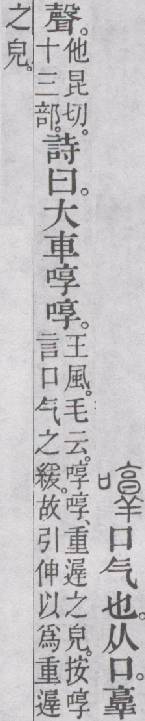 啍口气也。从口。𦎫
聲。他昆切。十三部。詩曰。大車啍啍。王風。毛云。啍啍、重遟之皃。按啍言口气之緩。故引伸以爲重遟
之皃。